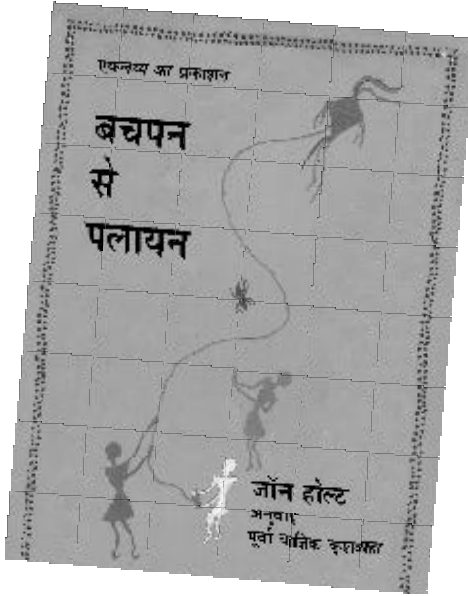 एकलव्य का प्रकाशन
बचपन
से
पलायन
जॉन होल्ट
अनुवाद
पूर्वा याज्ञिक कुशवाहा